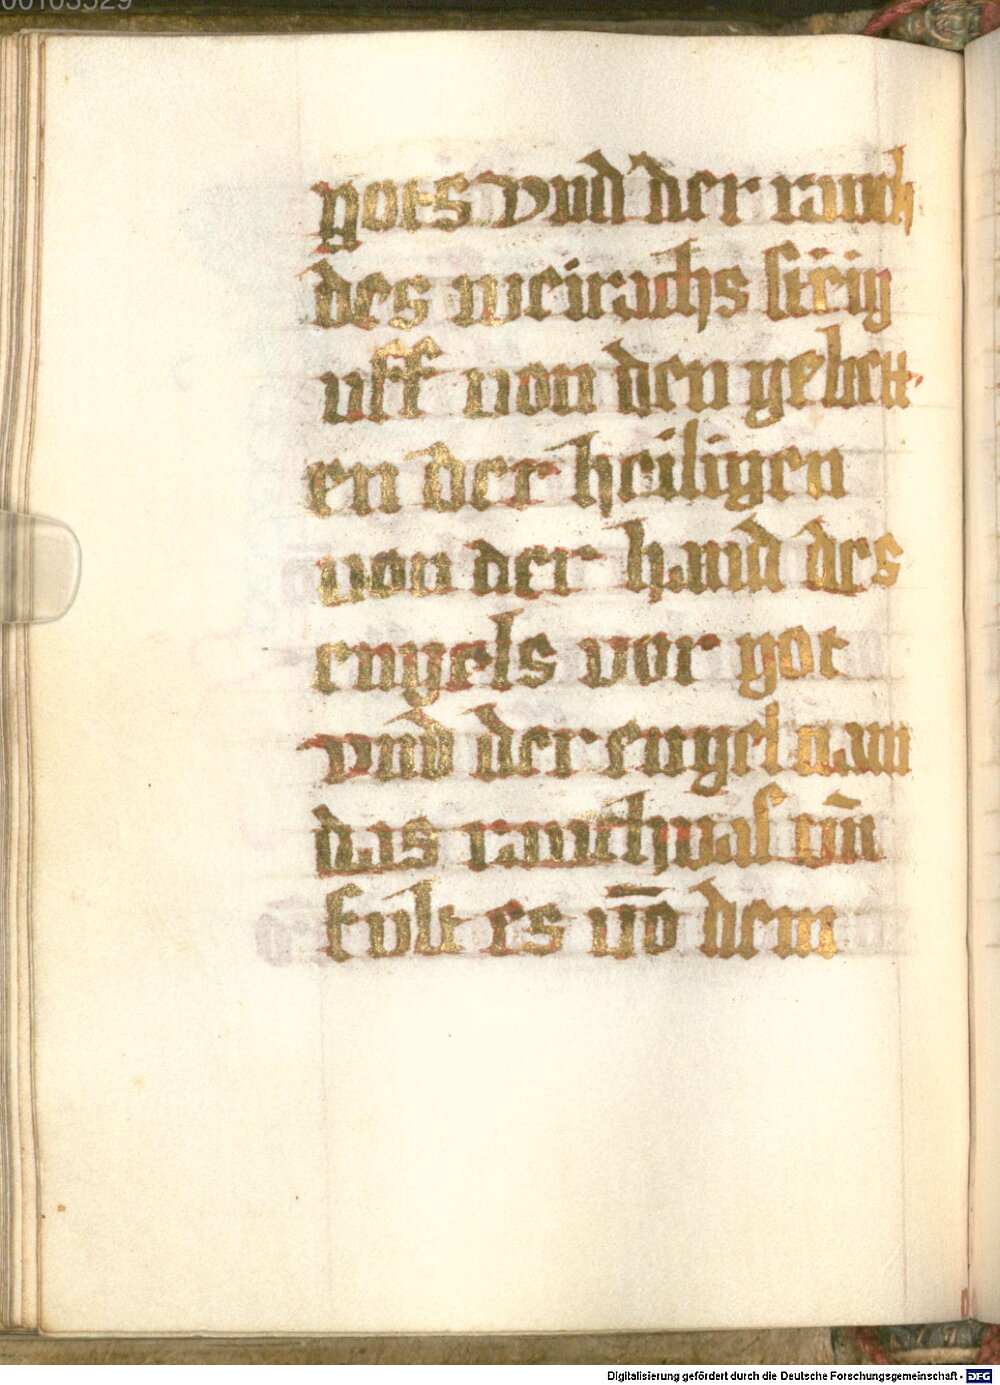 00103529
gots vnd der rauch
des weirachs steig
uff von den gebett
en der heiligen
von der hand des
engels vor got
vnd der engel nam
das rauchuas vn̄
fult es vō dem
Digitalisierung gefördert durch die Deutsche Forschungsgemeinschaft - DFG